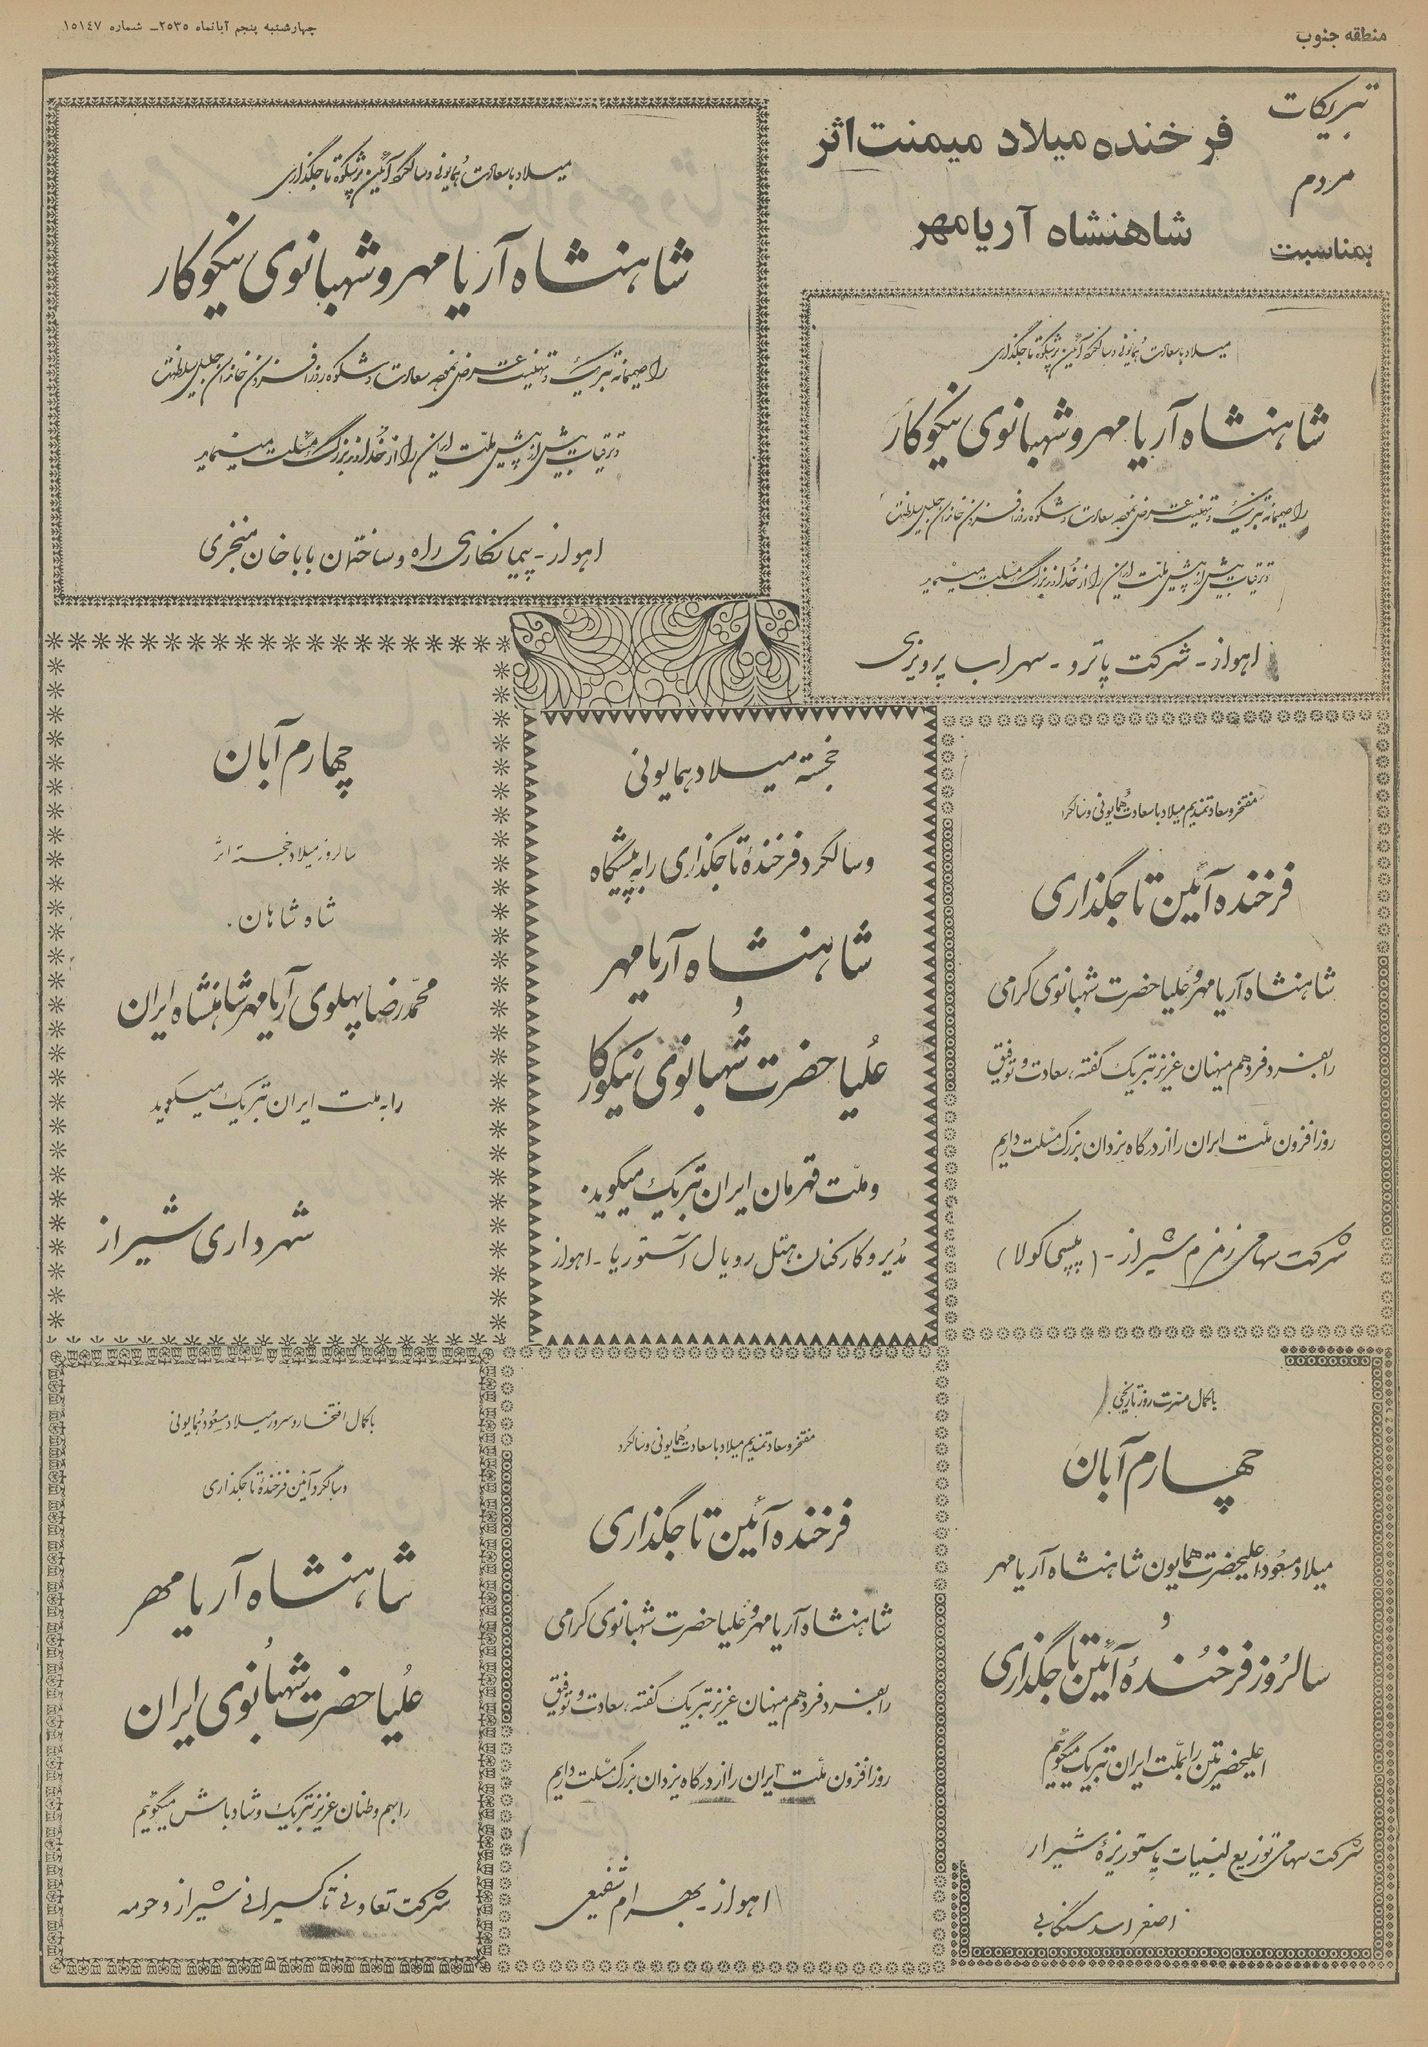 منطقه جنوب
چهارشنبه پنجم آبانماه ۲۵۳۵ـ شماره ۱۵۱۴۷
تبریکات
مردم
بمناسبت
فرخنده میلاد میمنت‌اثر
شاهنشاه آریامهر
میلاد با سعادت همایونی و سالگرد آئین پرشکوه تاجگذاری
شاهنشاه آریامهر و شهبانوی نیکوکار
را صمیمانه تبریک و تهنیت عرض نموده سعادت و شکوه روزافزون خاندان جلیل سلطنت
و ترقیات بیش از پیش ملت ایران را از خداوند بزرگ مسئلت مینماید
اهواز - شرکت پاترو - سهراب پرویزی
میلاد با سعادت همایونی و سالگرد آئین پرشکوه تاجگذاری
شاهنشاه آریامهر و شهبانوی نیکوکار
را صمیمانه تبریک و تهنیت عرض نموده سعادت و شکوه روزافزون خاندان جلیل سلطنت
و ترقیات بیش از پیش ملت ایران را از خداوند بزرگ مسئلت مینماید
اهواز - پیمانکاری راه و ساختمان باباخان منجزی
مفتخر و سعادتمندیم میلاد با سعادت همایونی و سالگرد
فرخنده آئین تاجگذاری
شاهنشاه آریامهر و علیاحضرت شهبانوی گرامی
را بفرد فرد هم میهنان عزیز تبریک گفته، سعادت و توفیق
روزافزون ملت ایران را از درگاه یزدان بزرگ مسئلت داریم
شرکت سهامی زمزم شیراز - (پپسی کولا)
خجسته میلاد همایونی
و سالگرد فرخندهٔ تاجگذاری را به پیشگاه
شاهنشاه آریامهر
و
علیاحضرت شهبانوی نیکوکار
و ملت قهرمان ایران تبریک میگوید.
مدیر و کارکنان هتل رویال آستوریا - اهواز
چهارم آبان
سالروز میلاد خجسته اثر
شاه شاهان.
محمدرضا پهلوی آریامهر شاهنشاه ایران
را به ملت ایران تبریک میگوید
شهرداری شیراز
با کمال مسرت روز تاریخی
چهارم آبان
میلاد مسعود اعلیحضرت همایون شاهنشاه آریامهر
و
سالروز فرخندهٔ آئین تاجگذاری
اعلیحضرتین را بملت ایران تبریک میگوئیم
شرکت سهامی توزیع لبنیات پاستوریزهٔ شیراز
اصغر اسد سنگابی
مفتخر و سعادتمندیم میلاد با سعادت همایونی و سالگرد
فرخنده آئین تاجگذاری
شاهنشاه آریامهر و علیاحضرت شهبانوی گرامی
را بفرد فرد هم میهنان عزیز تبریک گفته، سعادت و توفیق
روزافزون ملت ایران را از درگاه یزدان بزرگ مسئلت داریم
اهواز - بهرام شفیعی
با کمال افتخار و سرور میلاد مسعود همایونی
و سالگرد آئین فرخندهٔ تاجگذاری
شاهنشاه آریامهر
علیاحضرت شهبانوی ایران
را بهم وطنان عزیز تبریک و شادباش میگوئیم
شرکت تعاونی تاکسیرانی شیراز و حومه